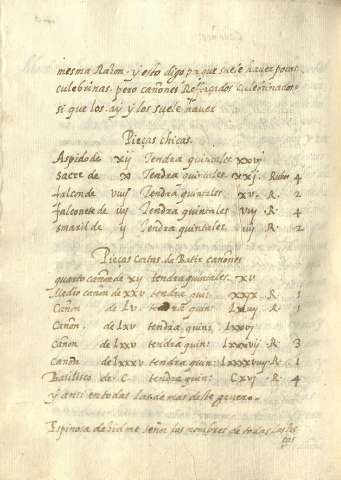 mesma Razon. y esto digo pr que suele haver pocas
culebrinas. pero cañones Reforçados Culebrinados
si que los ay y los suele haver
Pieças chicas.
Aspid de xij Tendra quintales xxvij
Sacre de x Tendra quintales xxj. Rubos 4
falcon de viij Tendra quintales xv. R. 2
falconete de iiij Tendra quintales viij R. 4
smaril de ij Tendra quintales iiij R. 2
Pieças de Batir cañones
quarto cañon de xij tendra quintales. xv
Medio cañon de xxv tendra quin: xxx R 1
Cañon de Lv. tendra quin: R 1
Cañon. de Lxv tendra quin:
cañon de Lxv tendra quin: R 3
cañon de Lxxxv tendra quin: R. 1
Basilisco de C. tendra quin: Cxvj R. 4
y ansi en todas las demas deste genero.
Espinosa dezidme señor los nombres de todas las pie
ças